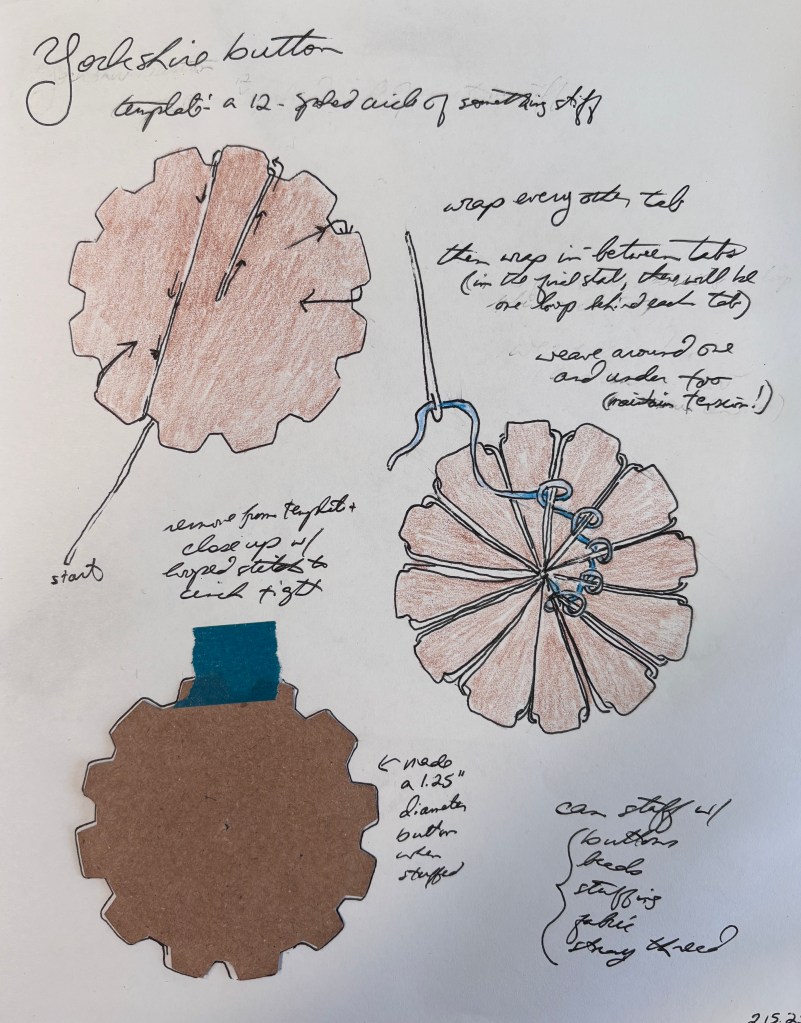 Yorkshire button
template: a 12-spoked circle of something stiff
wrap every other tab
then wrap in-between tabs
(in the final state, there will be
one loop behind each tab)
weave around one
and under two
(maintain tension!)
start
remove from template +
close up w/
looped stitch to
cinch tight
← made
a 1.25"
diameter
button
when
stuffed
can stuff w/
buttons
beads
stuffing
fabric
stray thread